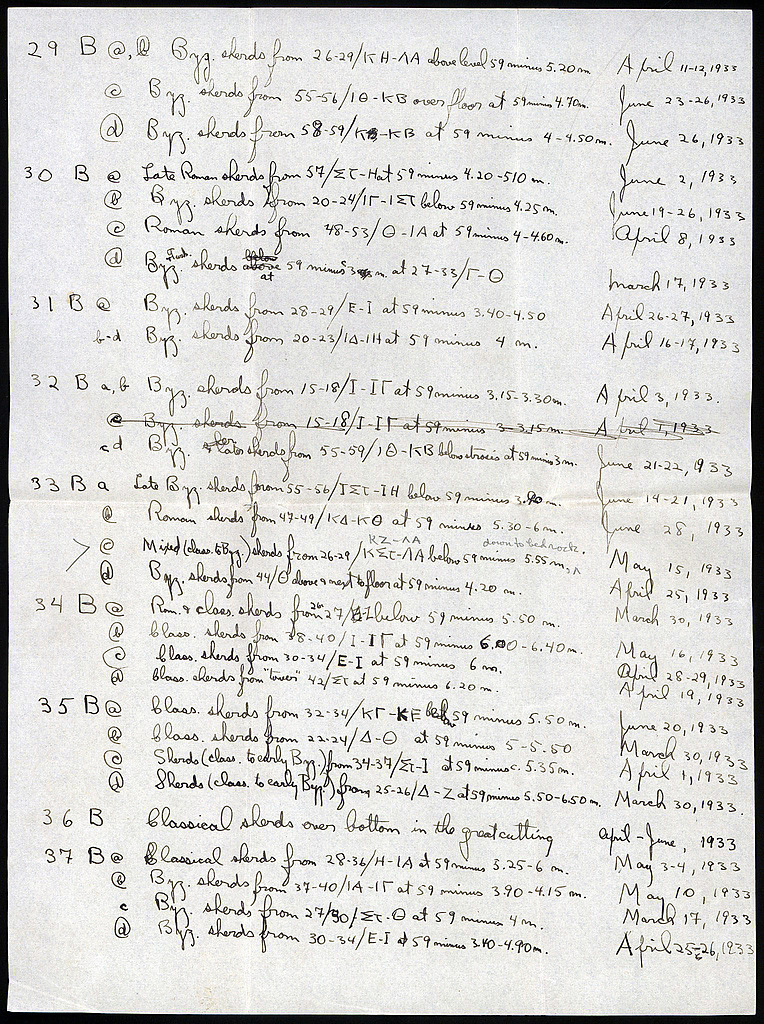 29 B a, b Byz. sherds from 26-29/ΚΗ-ΛΑ above level 59 minus 5.20 m. April 11-12, 1933
c Byz. sherds from 55-56/ΙΘ-ΚΒ over floor at 59 minus 4.70 m. June 23-26, 1933
d Byz. sherds from 58-59/ -ΚΒ at 59 minus 4-4.50 m. June 26, 1933
30 B a Late Roman sherds from 57/Στ-Η at 59 minus 4.20-510 m. June 2, 1933
b Byz. sherds from 20-24/ΙΓ-ΙΣΤ below 59 minus 4.25 m. June 19-26, 1933
c Roman sherds from 48-53/Θ-ΙΑ at 59 minus 4-4.60 m. April 8, 1933
d Byz. sherds below above at 59 minus 3 m. at 27-33/Γ-Θ March 17, 1933
31 B a Byz. sherds from 28-29/Ε-Ι at 59 minus 3.40-4.50 April 26-27, 1933
b-d Byz. sherds from 20-23/ΙΔ-ΙΗ at 59 minus 4 m. April 16-17, 1933
32 B a, b Byz. sherds from 15-18/Ι-ΙΓ at 59 minus 3.15-3.30 m. April 3, 1933.
c Byz. sherds from 15-18/Ι-ΙΓ at 59 minus 3-3.15 m. April 1, 1933
c d Byz. & later sherds from 55-59/ΙΘ-ΚΒ below at 59 minus 3 m. June 21-22, 1933
33 B a Late Byz. sherds from 55-56/ΙΣΤ-ΙΗ below 59 minus 3.90 m. June 14-21, 1933
b Roman sherds from 47-49/ΚΔ-ΚΘ at 59 minus 5.30-6 m. June 28, 1933
ΚΖ-ΛΑ down to bedrock.
c Mixed (class. to Byz.) sherds from 26-29/ΚΣΤ-ΛΑ below 59 minus 5.55 m. May 15, 1933
d Byz. sherds from 44/Θ above & next to floor at 59 minus 4.20 m. April 25, 1933
34 B a Rom. & class. sherds from 26-27/ below 59 minus 5.50 m. March 30, 1933
b Class. sherds from 38-40/Ι-ΙΓ at 59 minus 6.00-6.40 m. May 16, 1933
c Class. sherds from 30-34/Ε-Ι at 59 minus 6 m. April 28-29, 1933
d Class. sherds from "tower" 42/Στ at 59 minus 6.20 m. April 19, 1933
35 B a Class. sherds from 32-34/ΚΓ-ΚΕ below 59 minus 5.50 m. June 20, 1933
b Class. sherds from 22-24/Δ-Θ at 59 minus 5-5.50 March 30, 1933
c Sherds (class. to early Byz.) from 34-37/Στ-Ι at 59 minus c. 5.35 m. April 1, 1933
d Sherds (class. to early Byz.) from 25-26/Δ-Ζ at 59 minus 5.50-6.50 m. March 30, 1933.
36 B Classical sherds over bottom in the great cutting April-June, 1933
37 B a Classical sherds from 28-36/Η-ΙΑ at 59 minus 3.25-6 m. May 3-4, 1933
b Byz. sherds from 37-40/ΙΑ-ΙΓ at 59 minus 3.90-4.15 m. May 10, 1933
c Byz. sherds from 27/30/Στ-Θ at 59 minus 4 m. March 17, 1933
d Byz. sherds from 30-34/Ε-Ι at 59 minus 3.40-4.90 m. April 25-26, 1933